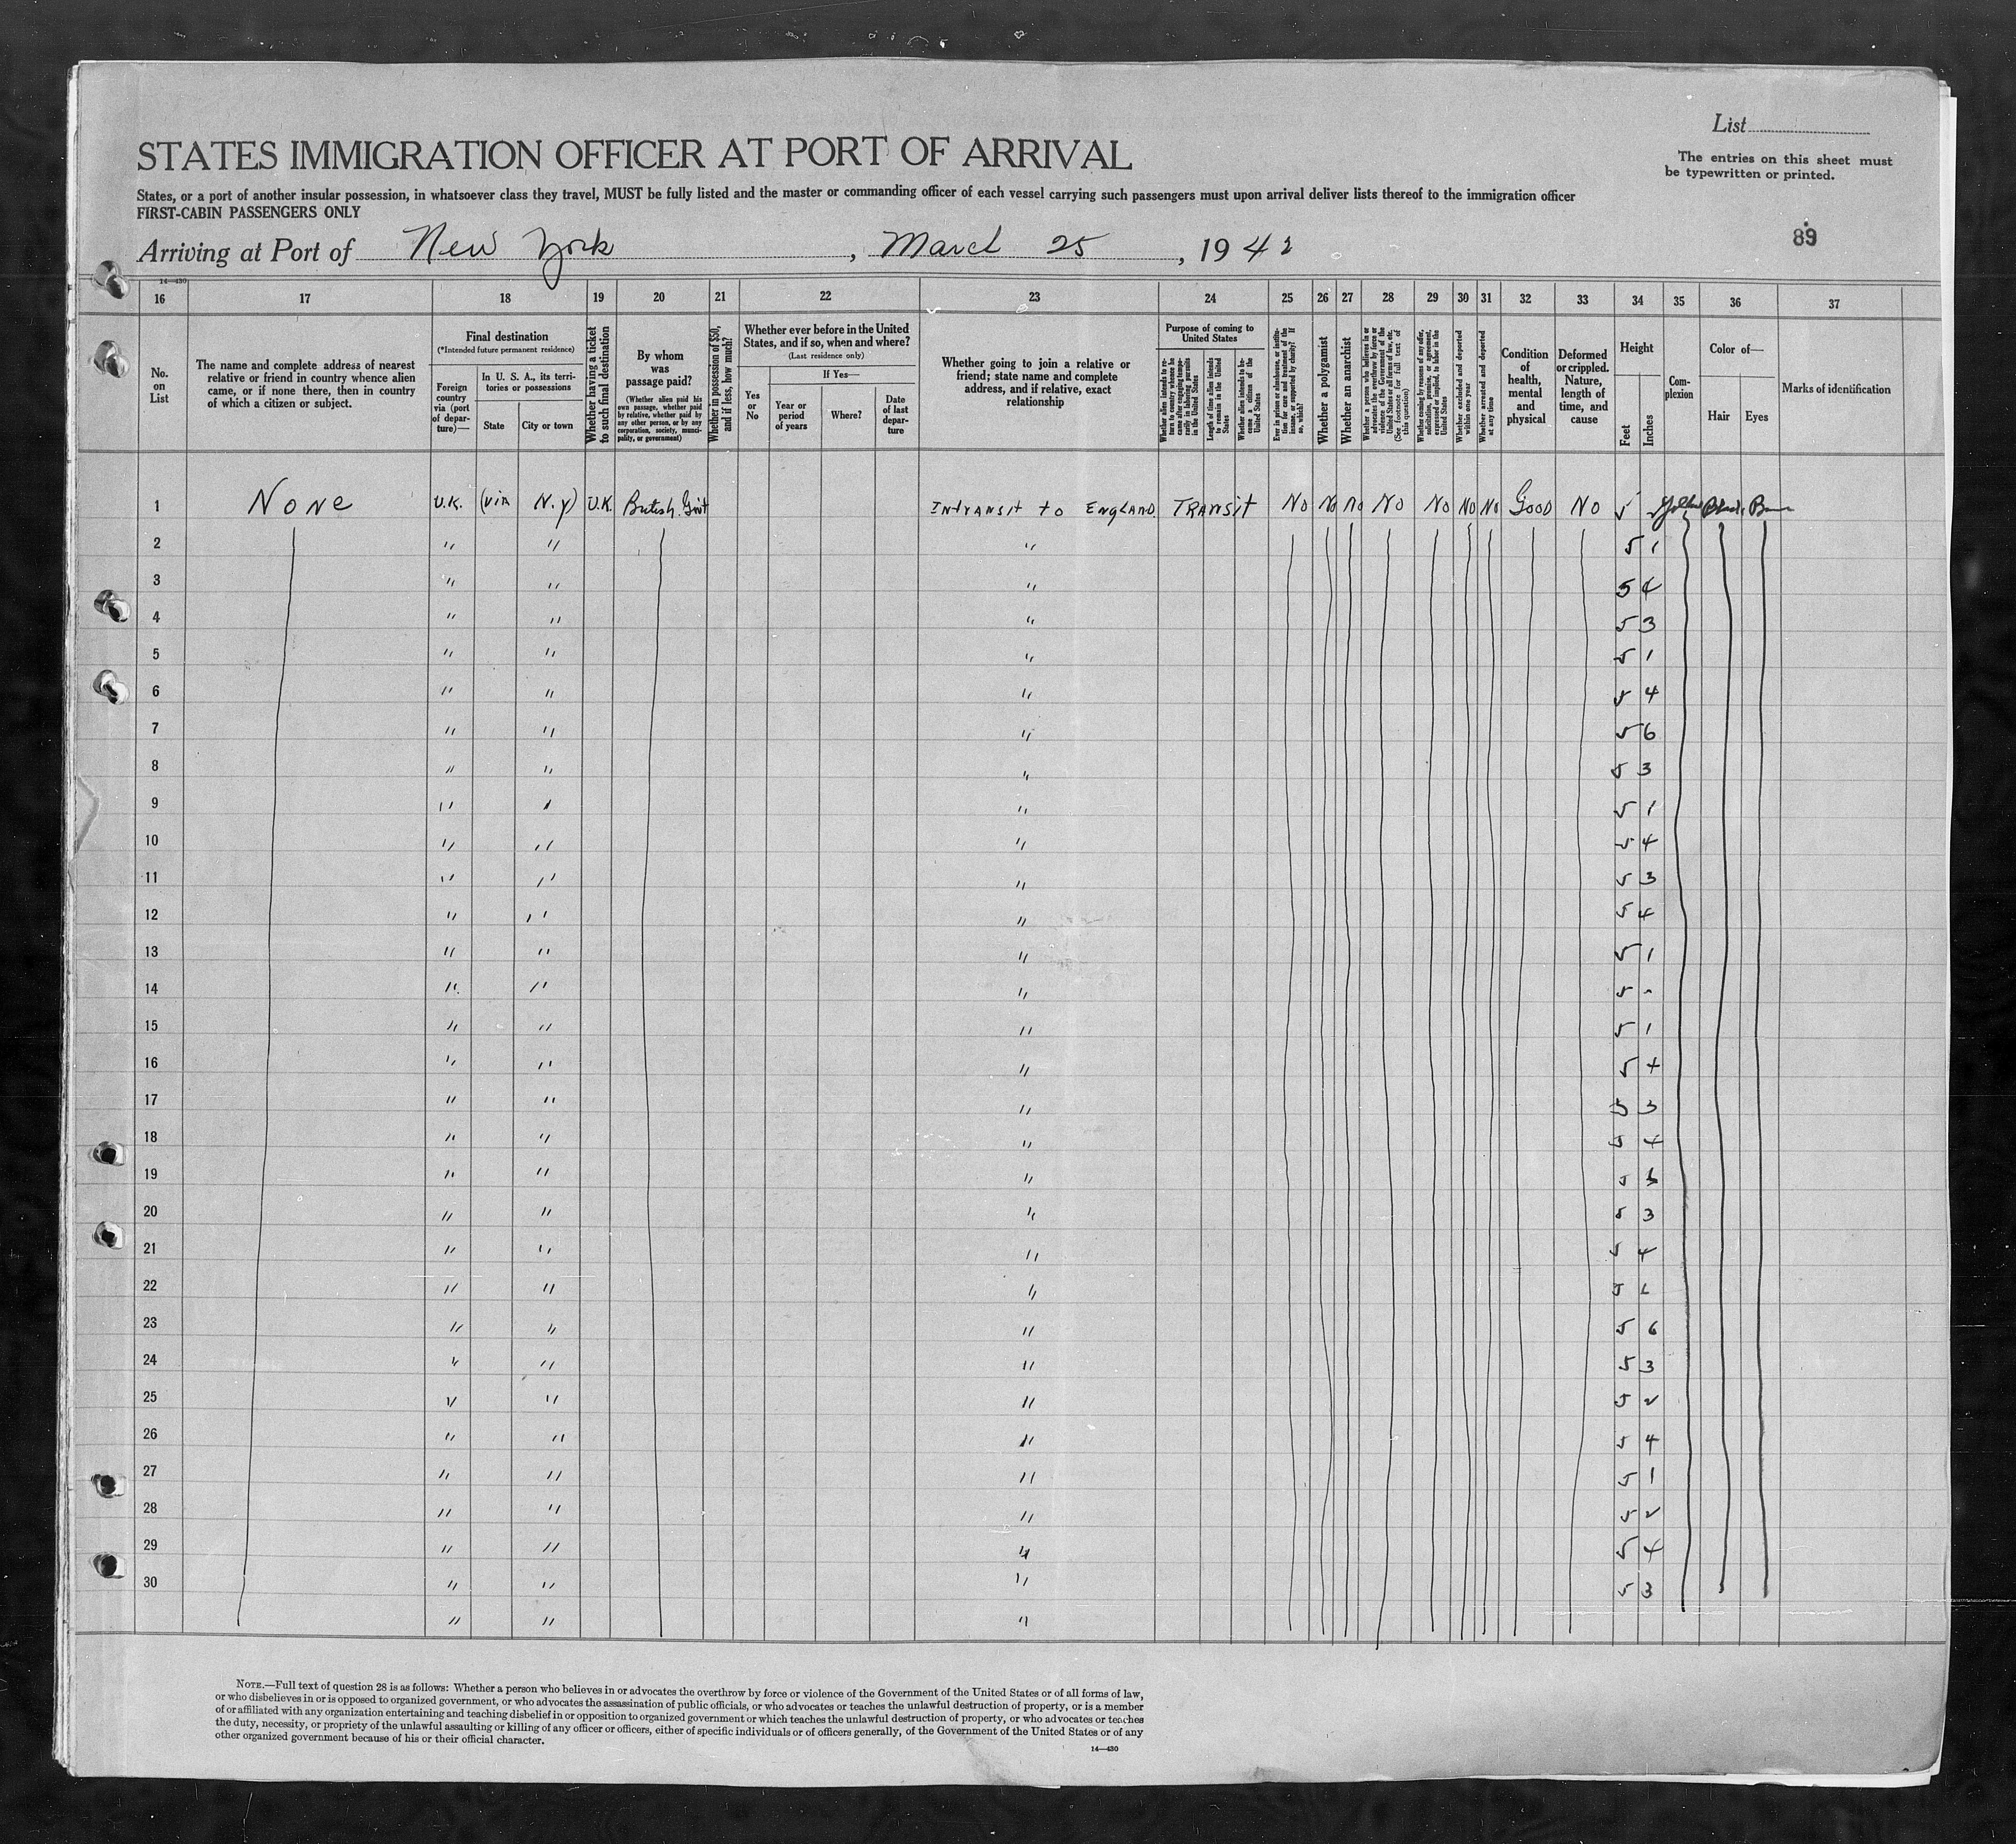 List
The entries on this sheet must
be typewritten or printed.
STATES IMMIGRATION OFFICER AT PORT OF ARRIVAL
States, or a port of another insular possession, in whatsoever class they travel, MUST be fully listed and the master or commanding officer of each vessel carrying such passengers must upon arrival deliver lists thereof to the immigration officer
FIRST-CABIN PASSENGERS ONLY
89
Arriving at Port of New York, March 25, 1942
14—430
16 17 18 19 20 21 22 23 24 25 26 27 28 29 30 31 32 33 34 35 36 37
No.
on
List
The name and complete address of nearest
relative or friend in country whence alien
came, or if none there, then in country
of which a citizen or subject.
Final destination
(*Intended future permanent residence)
Foreign
country
via (port
of depar-
ture)—
In U. S. A., its terri-
tories or possessions
State
City or town
Whether having a ticket
to such final destination
By whom
was
passage paid?
(Whether alien paid his
own passage, whether paid
by relative, whether paid by
any other person, or by any
corporation, society, munici-
pality, or government)
Whether in possession of $50,
and if less, how much?
Whether ever before in the United
States, and if so, when and where?
(Last residence only)
Yes
or
No
If Yes—
Year or
period
of years
Where?
Date
of last
depar-
ture
Whether going to join a relative or
friend; state name and complete
address, and if relative, exact
relationship
Purpose of coming to
United States
Whether alien intends to re-
turn to country whence he
came after engaging tempo-
rarily in laboring pursuits
in the United States
Length of time alien intends
to remain in the United
States
Whether alien intends to be-
come a citizen of the
United States
Ever in prison or almshouse, or institu-
tion for care and treatment of the
insane, or supported by charity? If
so, which?
Whether a polygamist
Whether an anarchist
Whether a person who believes in or
advocates the overthrow by force or
violence of the Government of the
United States or all forms of law, etc.
(See footnote for full text of
this question)
Whether coming by reasons of any offer,
solicitation, promise, or agreement,
expressed or implied, to labor in the
United States
Whether excluded and deported
within one year
Whether arrested and deported
at any time
Condition
of
health,
mental
and
physical
Deformed
or crippled.
Nature,
length of
time, and
cause
Height
Feet
Inches
Com-
plexion
Color of—
Hair
Eyes
Marks of identification
1 None U.K. (via N.Y) U.K. British Gov't Intransit to England. TRANSIT No No no No No No No Good No 5
2 " " " 5 1
3 " " " 5 4
4 " " " 5 3
5 " " " 5 1
6 " " " 5 4
7 " " " 5 6
8 " " " 5 3
9 " " " 5 1
10 " " " 5 4
11 " " " 5 3
12 " " " 5 4
13 " " " 5 1
14 " " " 5 -
15 " " " 5 1
16 " " " 5 4
17 " " " 5 3
18 " " " 5 4
19 " " " 5
20 " " " 5 3
21 " " " 5 4
22 " " " 5
23 " " " 5 6
24 " " " 5 3
25 " " " 5 2
26 " " " 5 4
27 " " " 5 1
28 " " " 5 2
29 " " " 5 4
30 " " " 5 3
" " "
NOTE.—Full text of question 28 is as follows: Whether a person who believes in or advocates the overthrow by force or violence of the Government of the United States or of all forms of law,
or who disbelieves in or is opposed to organized government, or who advocates the assassination of public officials, or who advocates or teaches the unlawful destruction of property, or is a member
of or affiliated with any organization entertaining and teaching disbelief in or opposition to organized government or which teaches the unlawful destruction of property, or who advocates or teaches
the duty, necessity, or propriety of the unlawful assaulting or killing of any officer or officers, either of specific individuals or of officers generally, of the Government of the United States or of any
other organized government because of his or their official character.
14—430